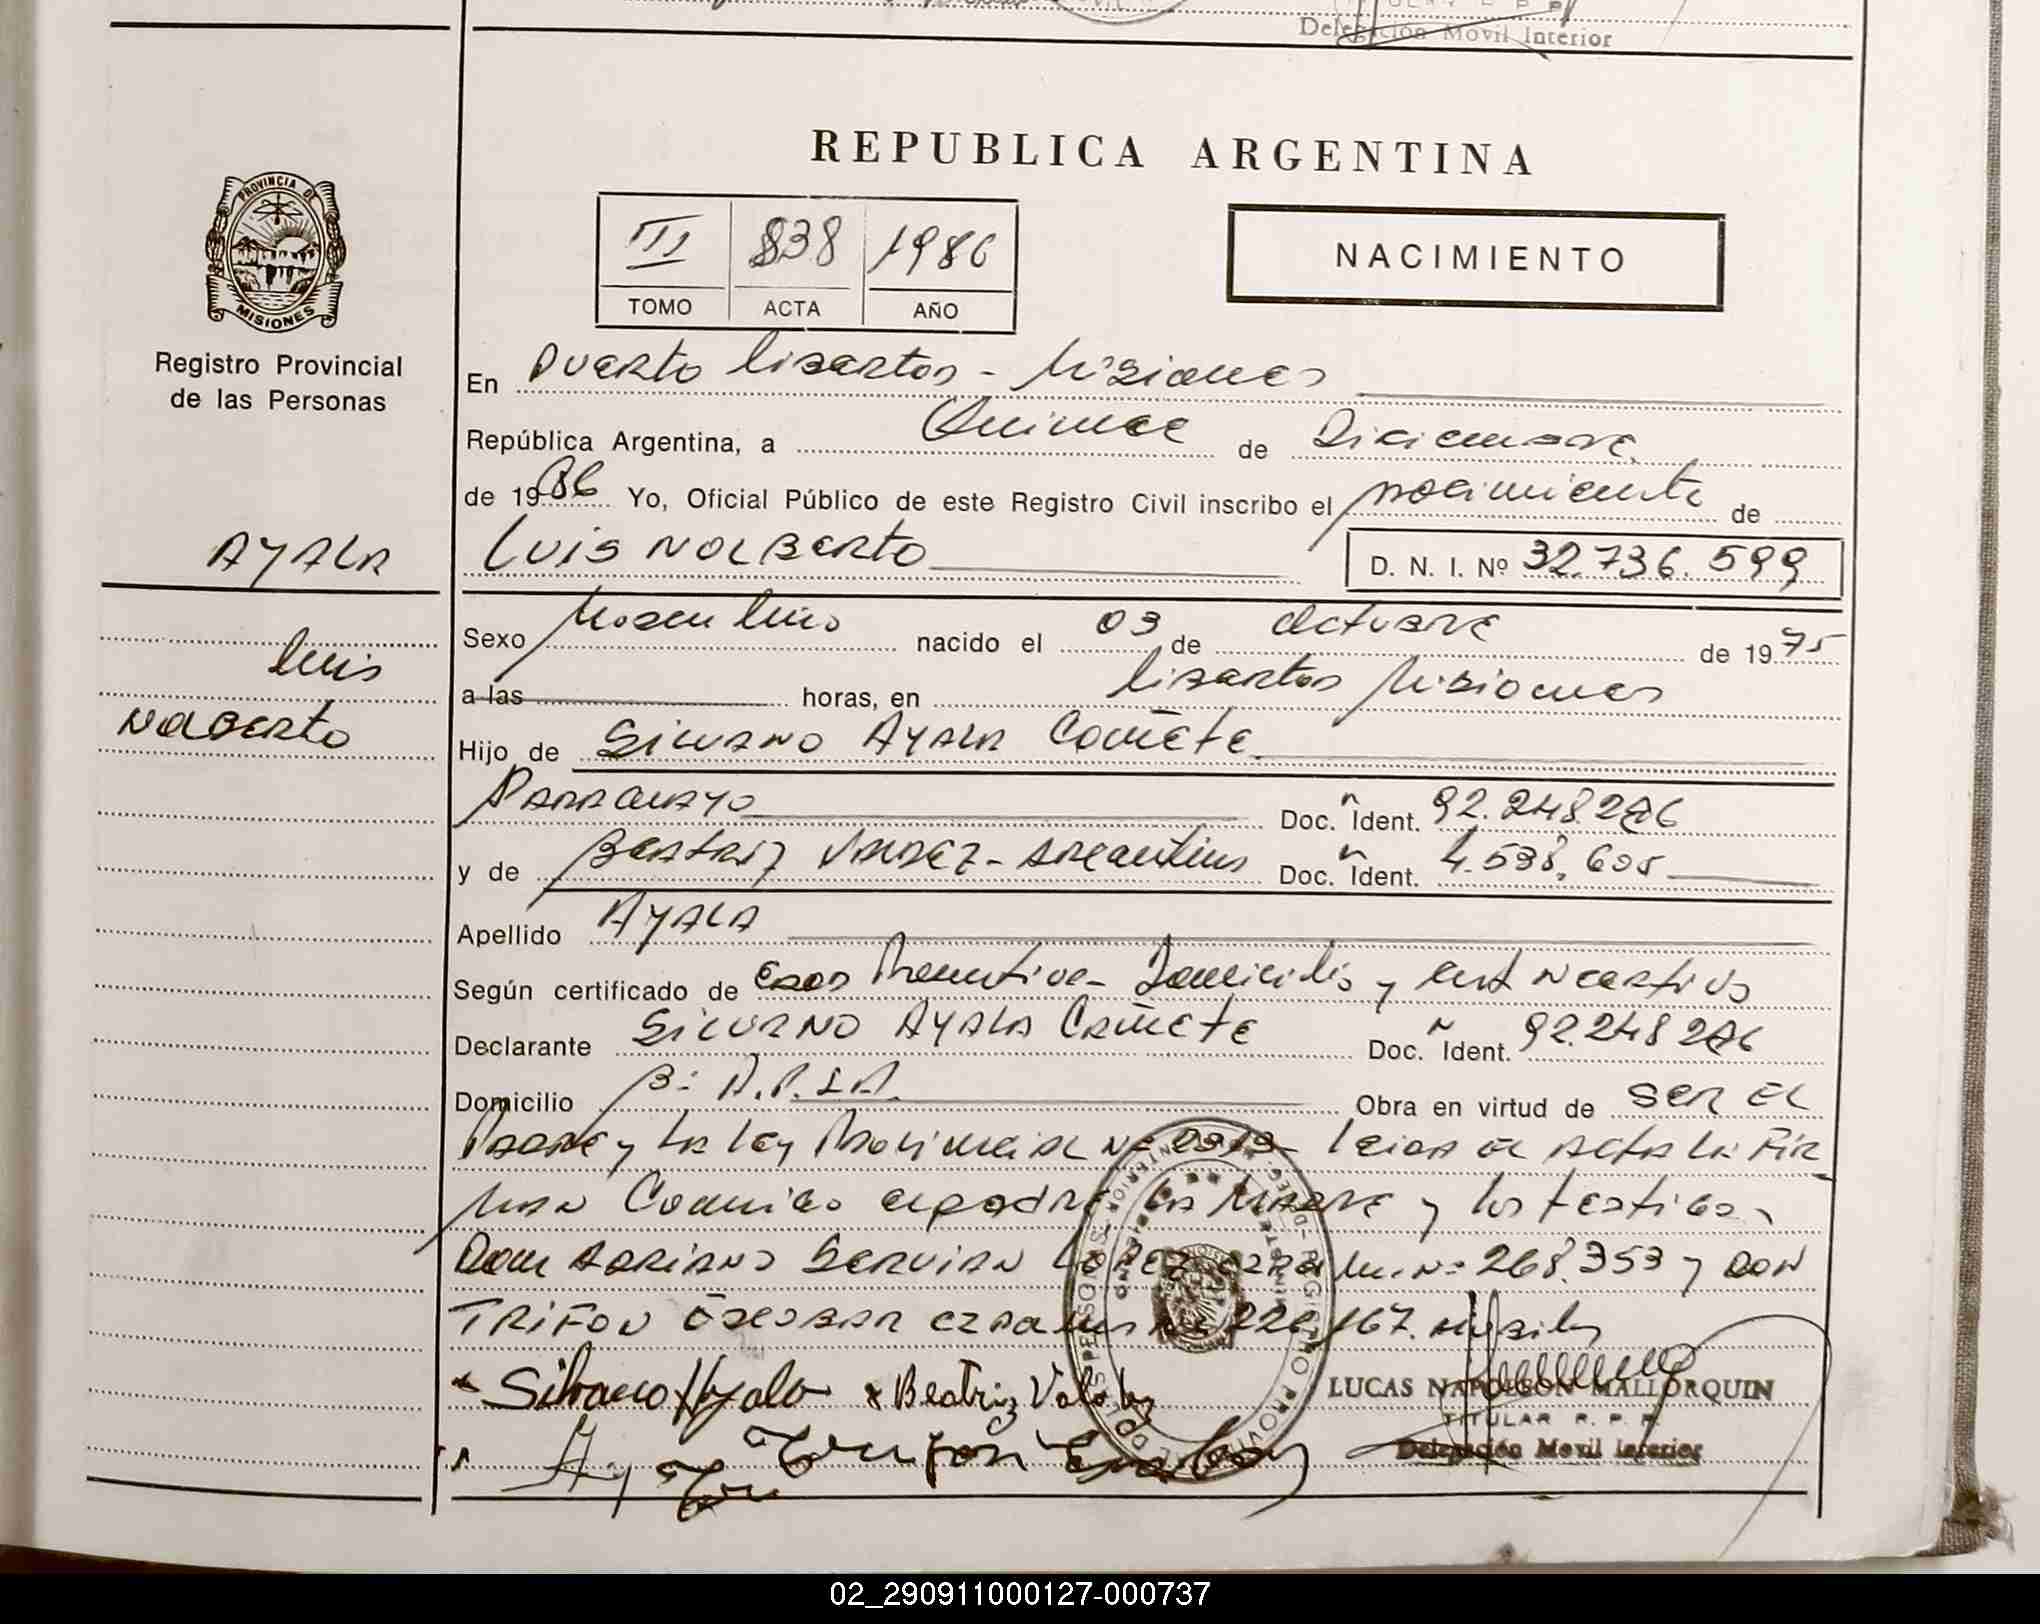 Delegación Movil Interior
REPUBLICA ARGENTINA
PROVINCIA DE
MISIONES
Registro Provincial
de las Personas
III 838 1986
TOMO ACTA AÑO
NACIMIENTO
En Puerto Libertad - Misiones
República Argentina, a Quince de Diciembre
de 1986 Yo, Oficial Público de este Registro Civil inscribo el nacimiento de
AYALA
Luis
Nolberto
LUIS NOLBERTO D. N. I. Nº 32.736.599
Sexo Masculino nacido el 03 de Octubre de 1975
a las horas, en Libertad Misiones
Hijo de Silvano AYALA Cañete
Paraguayo Doc. Ident. 92.248.276
y de Beatriz Valdez - Argentina Doc. Ident. 4.538.605
Apellido AYALA
Según certificado de Domicilio y
Declarante Silvano AYALA Cañete Doc. Ident. 92.248276
Domicilio Bº A.P.S.A. Obra en virtud de ser el
Padre y la Ley Provincial Nº Leida el Acta la fir
man Conmigo el padre la Madre y los testigos
Don Adriano Servian Lopez Nº 268.353 y Don
TRIFON Escobar
Silvano Ayala x Beatriz Valdez
LUCAS NAPOLEON MALLORQUIN
TITULAR R. P. P.
Delegación Movil Interior
Trifon Escobar
02_290911000127-000737